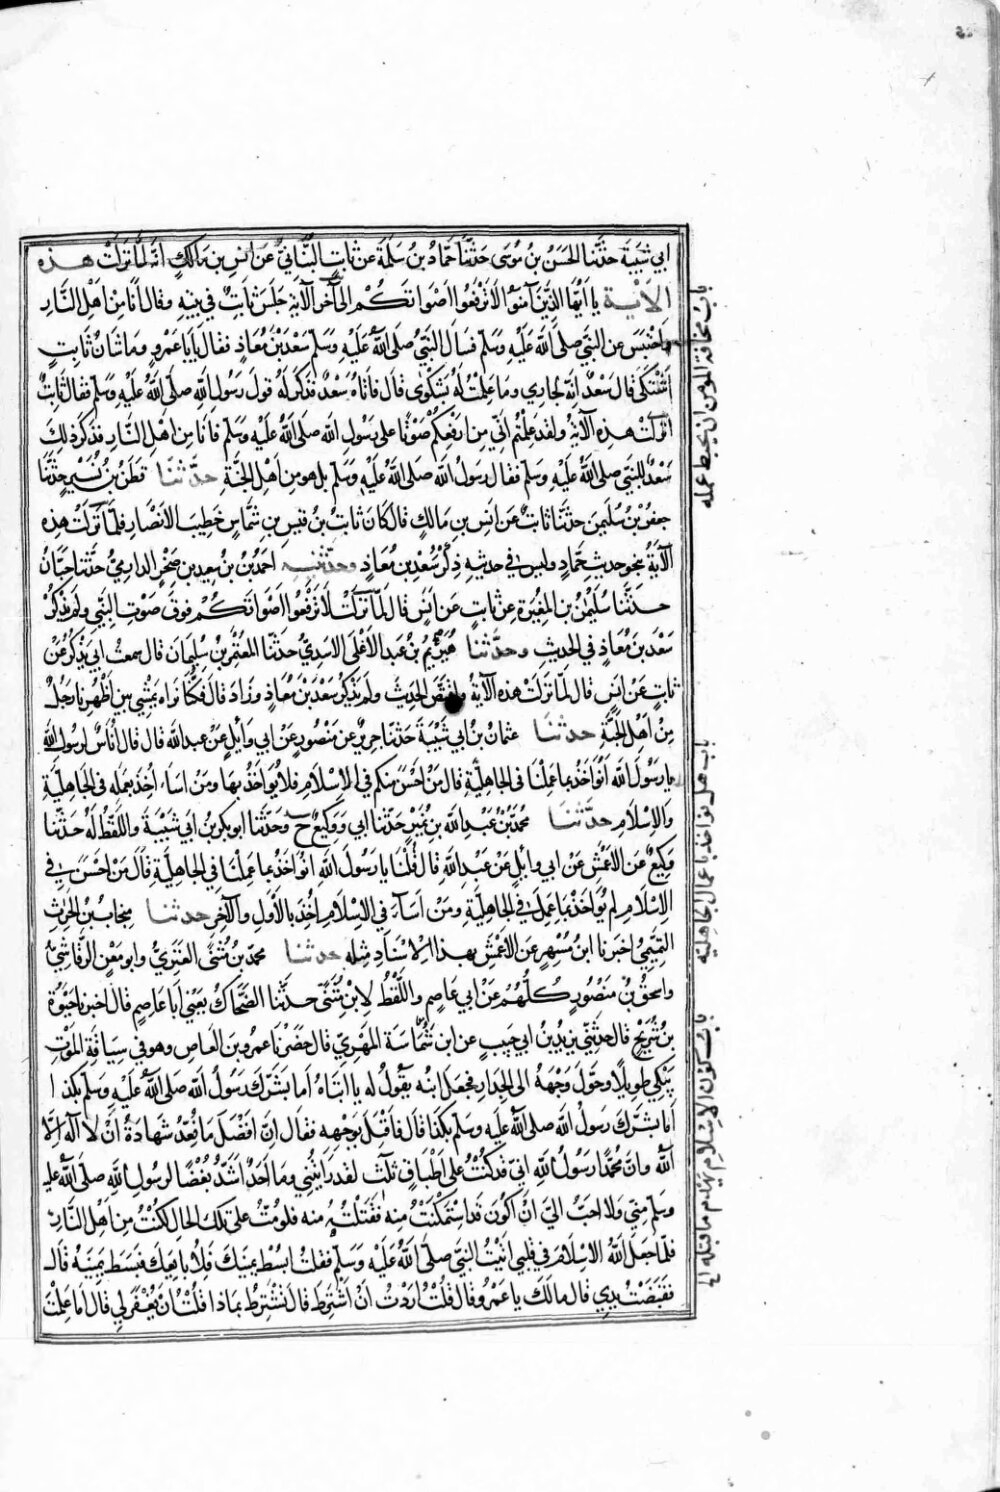 ابي شيبة حدثنا الحسن بن موسى حدثنا حماد بن سلمة عن ثابت البناني عن انس بن مالك انه لما نزلت هذه
الاية يا ايها الذين آمنوا لا ترفعوا اصواتكم الى آخر الآية جلس ثابت في بيته وقال انا من اهل النار
واحتبس عن النبي صلى الله عليه وسلم فسال النبي صلى الله عليه وسلم سعد بن معاذ فقال يا با عمرو وما شان ثابت
اشتكى قال سعد انه لجاري وما علمت له بشكوى قال فاتاه سعد فذكر له قول رسول الله صلى الله عليه وسلم فقال ثابت
انزلت هذه الآية ولقد علمتم اني من ارفعكم صوتا على رسول الله صلى الله عليه وسلم فانا من اهل النار فذكر ذلك
سعد للنبي صلى الله عليه وسلم فقال رسول الله صلى الله عليه وسلم بل هو من اهل الجنة حدثنا قطن بن نسير حدثنا
جعفر بن سليمن حدثنا ثابت عن انس بن مالك قال كان ثابت بن قيس بن شماس خطيب الانصار فلما نزلت هذه
الآية بنحو حديث حماد وليس في حديثه ذكر سعد بن معاذ وحدثنيه احمد بن سعيد بن صخر الدارمي حدثنا حبان
حدثنا سليمن بن المغيرة عن ثابت عن انس قال لما نزلت لا ترفعوا اصواتكم فوق صوت النبي ولم يذكر
سعد بن معاذ في الحديث وحدثنا هريم بن عبد الاعلى الاسدي حدثنا المعتمر بن سليمان قال سمعت ابي يذكر عن
ثابت عن انس قال لما نزلت هذه الآية واقتص الحديث ولم يذكر سعد بن معاذ وزاد قال فكنا نراه يمشي بين اظهرنا رجل
من اهل الجنة حدثنا عثمان بن ابي شيبة حدثنا جرير عن منصور عن ابي وائل عن عبد الله قال قال أناس لرسول الله
يا رسول الله أنؤاخذ بما عملنا في الجاهلية قال من احسن منكم في الاسلام فلا يؤاخذ بها ومن اساء اخذ بعمله في الجاهلية
والاسلام حدثنا محمد بن عبد الله بن نمير حدثنا ابي ووكيع ح وحدثنا ابو بكر بن ابي شيبة واللفظ له حدثنا
وكيع عن الاعمش عن ابي وائل عن عبد الله قال قلنا يا رسول الله انؤاخذ بما عملنا في الجاهلية قال من احسن في
الاسلام لم يؤاخذ بما عمل في الجاهلية ومن اسآء في الاسلام اخذ بالاول والآخر حدثنا منجاب بن الحرث
التميمي اخبرنا ابن مسهر عن الاعمش بهذا الاسناد مثله حدثنا محمد بن مثنى العنزي وابو معن الرقاشي
واسحق بن منصور كلهم عن ابي عاصم واللفظ لابن مثنى حدثنا الضحاك يعني أبا عاصم قال اخبرنا حيوة
بن شريح قال حدثني يزيد بن ابي حبيب عن ابن شماسة المهري قال حضرنا عمرو بن العاص وهو في سياقة الموت
يبكي طويلا وحول وجهه الى الجدار فجعل ابنه يقول له يا ابتاه أما بشرك رسول الله صلى الله عليه وسلم بكذا
أما بشرك رسول الله صلى الله عليه وسلم بكذا قال فاقبل بوجهه فقال ان افضل ما نعد شهادة ان لا اله الا
الله وان محمدا رسول الله اني قد كنت على اطباق ثلث لقد رايتني وما احد اشد بغضا لرسول الله صلى الله عليه
وسلم مني ولا احب الي ان اكون قد استمكنت منه فقتلته منه فلو مت على تلك الحال لكنت من اهل النار
فلما جعل الله الاسلام في قلبي اتيت النبي صلى الله عليه وسلم فقلت ابسط يمينك فلأبايعك فبسط يمينه قال
فقبضت يدي قال مالك يا عمرو قال قلت اردت ان اشترط قال تشترط بماذا قلت ان يغفر لي قال أما علمت
باب مخافة المؤمن ان يحبط عمله
باب هل نؤاخذ باعمال الجاهلية
باب كون الاسلام يهدم ما قبله